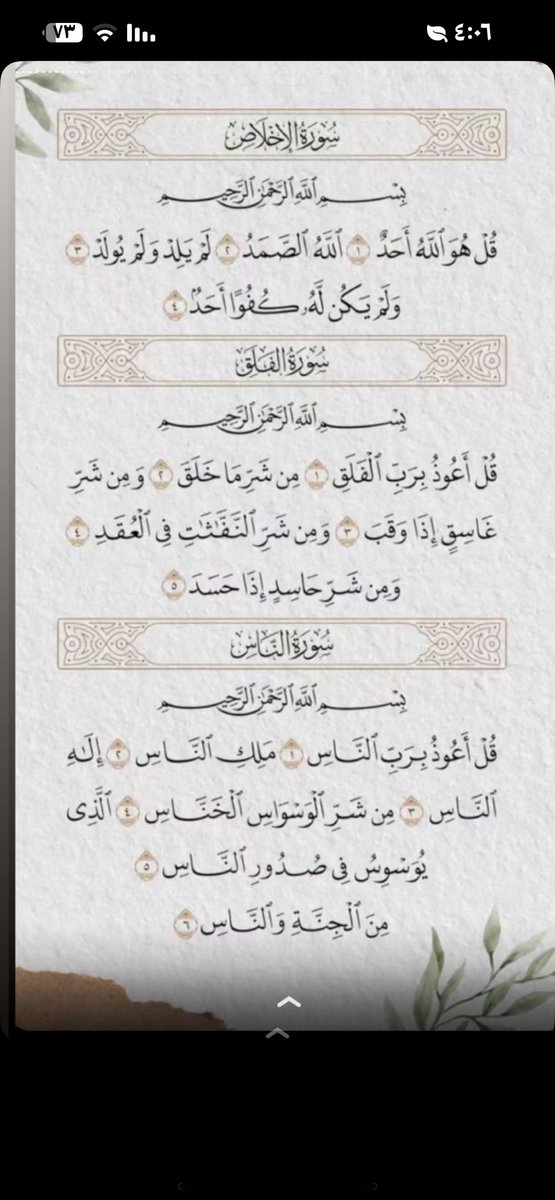 ٧٣
٤:٠٦
سُورَةُ الإِخْلَاصِ
بِسْمِ ٱللَّهِ ٱلرَّحْمَٰنِ ٱلرَّحِيمِ
قُلْ هُوَ ٱللَّهُ أَحَدٌ ١ ٱللَّهُ ٱلصَّمَدُ ٢ لَمْ يَلِدْ وَلَمْ يُولَدْ ٣
وَلَمْ يَكُن لَّهُۥ كُفُوًا أَحَدٌۢ ٤
سُورَةُ الفَلَقِ
بِسْمِ ٱللَّهِ ٱلرَّحْمَٰنِ ٱلرَّحِيمِ
قُلْ أَعُوذُ بِرَبِّ ٱلْفَلَقِ ١ مِن شَرِّ مَا خَلَقَ ٢ وَمِن شَرِّ
غَاسِقٍ إِذَا وَقَبَ ٣ وَمِن شَرِّ ٱلنَّفَّٰثَٰتِ فِى ٱلْعُقَدِ ٤
وَمِن شَرِّ حَاسِدٍ إِذَا حَسَدَ ٥
سُورَةُ النَّاسِ
بِسْمِ ٱللَّهِ ٱلرَّحْمَٰنِ ٱلرَّحِيمِ
قُلْ أَعُوذُ بِرَبِّ ٱلنَّاسِ ١ مَلِكِ ٱلنَّاسِ ٢ إِلَٰهِ
ٱلنَّاسِ ٣ مِن شَرِّ ٱلْوَسْوَاسِ ٱلْخَنَّاسِ ٤ ٱلَّذِى
يُوَسْوِسُ فِى صُدُورِ ٱلنَّاسِ ٥
مِنَ ٱلْجِنَّةِ وَٱلنَّاسِ ٦